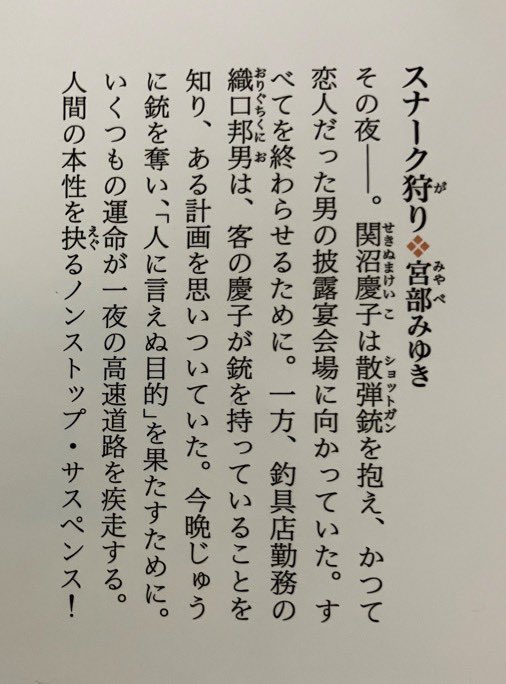 スナーク狩り❖宮部みゆき
その夜――。関沼慶子は散弾銃を抱え、かつて
恋人だった男の披露宴会場に向かっていた。す
べてを終わらせるために。一方、釣具店勤務の
織口邦男は、客の慶子が銃を持っていることを
知り、ある計画を思いついていた。今晩じゅう
に銃を奪い、「人に言えぬ目的」を果たすために。
いくつもの運命が一夜の高速道路を疾走する。
人間の本性を抉るノンストップ・サスペンス！